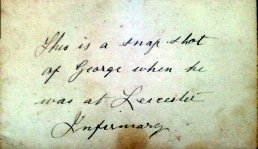 This is a snap shot
of George when he
was at Leicester
Infirmary.